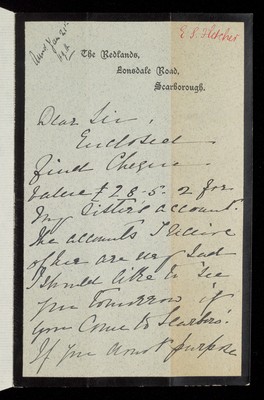 E. S. Fletcher
Jan 21st
The Redlands,
Lonsdale Road,
Scarborough.
Dear Sir,
Enclosed
find Cheque
value £ 28-5-2 for
my sister's account.
The accounts I receive
of her are very sad
I should like to see
you tomorrow if
you come to Scarbro'.
If you do not purpose